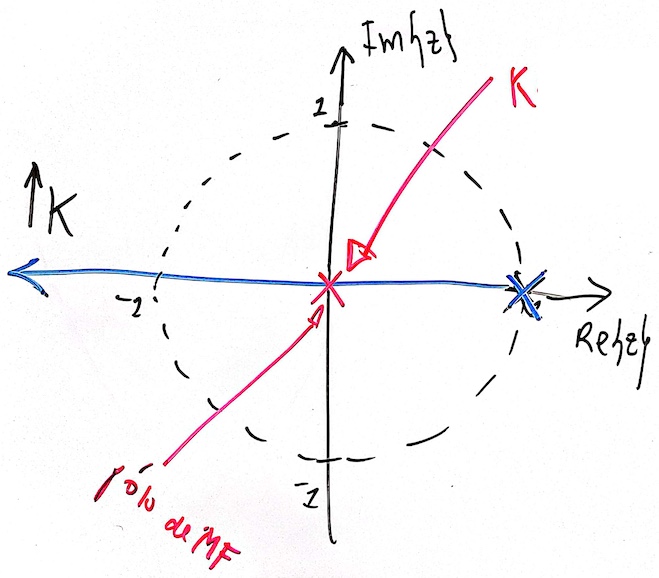 Im{z}
K
1
↑K
-1
1
Re{z}
-1
pólo de MF